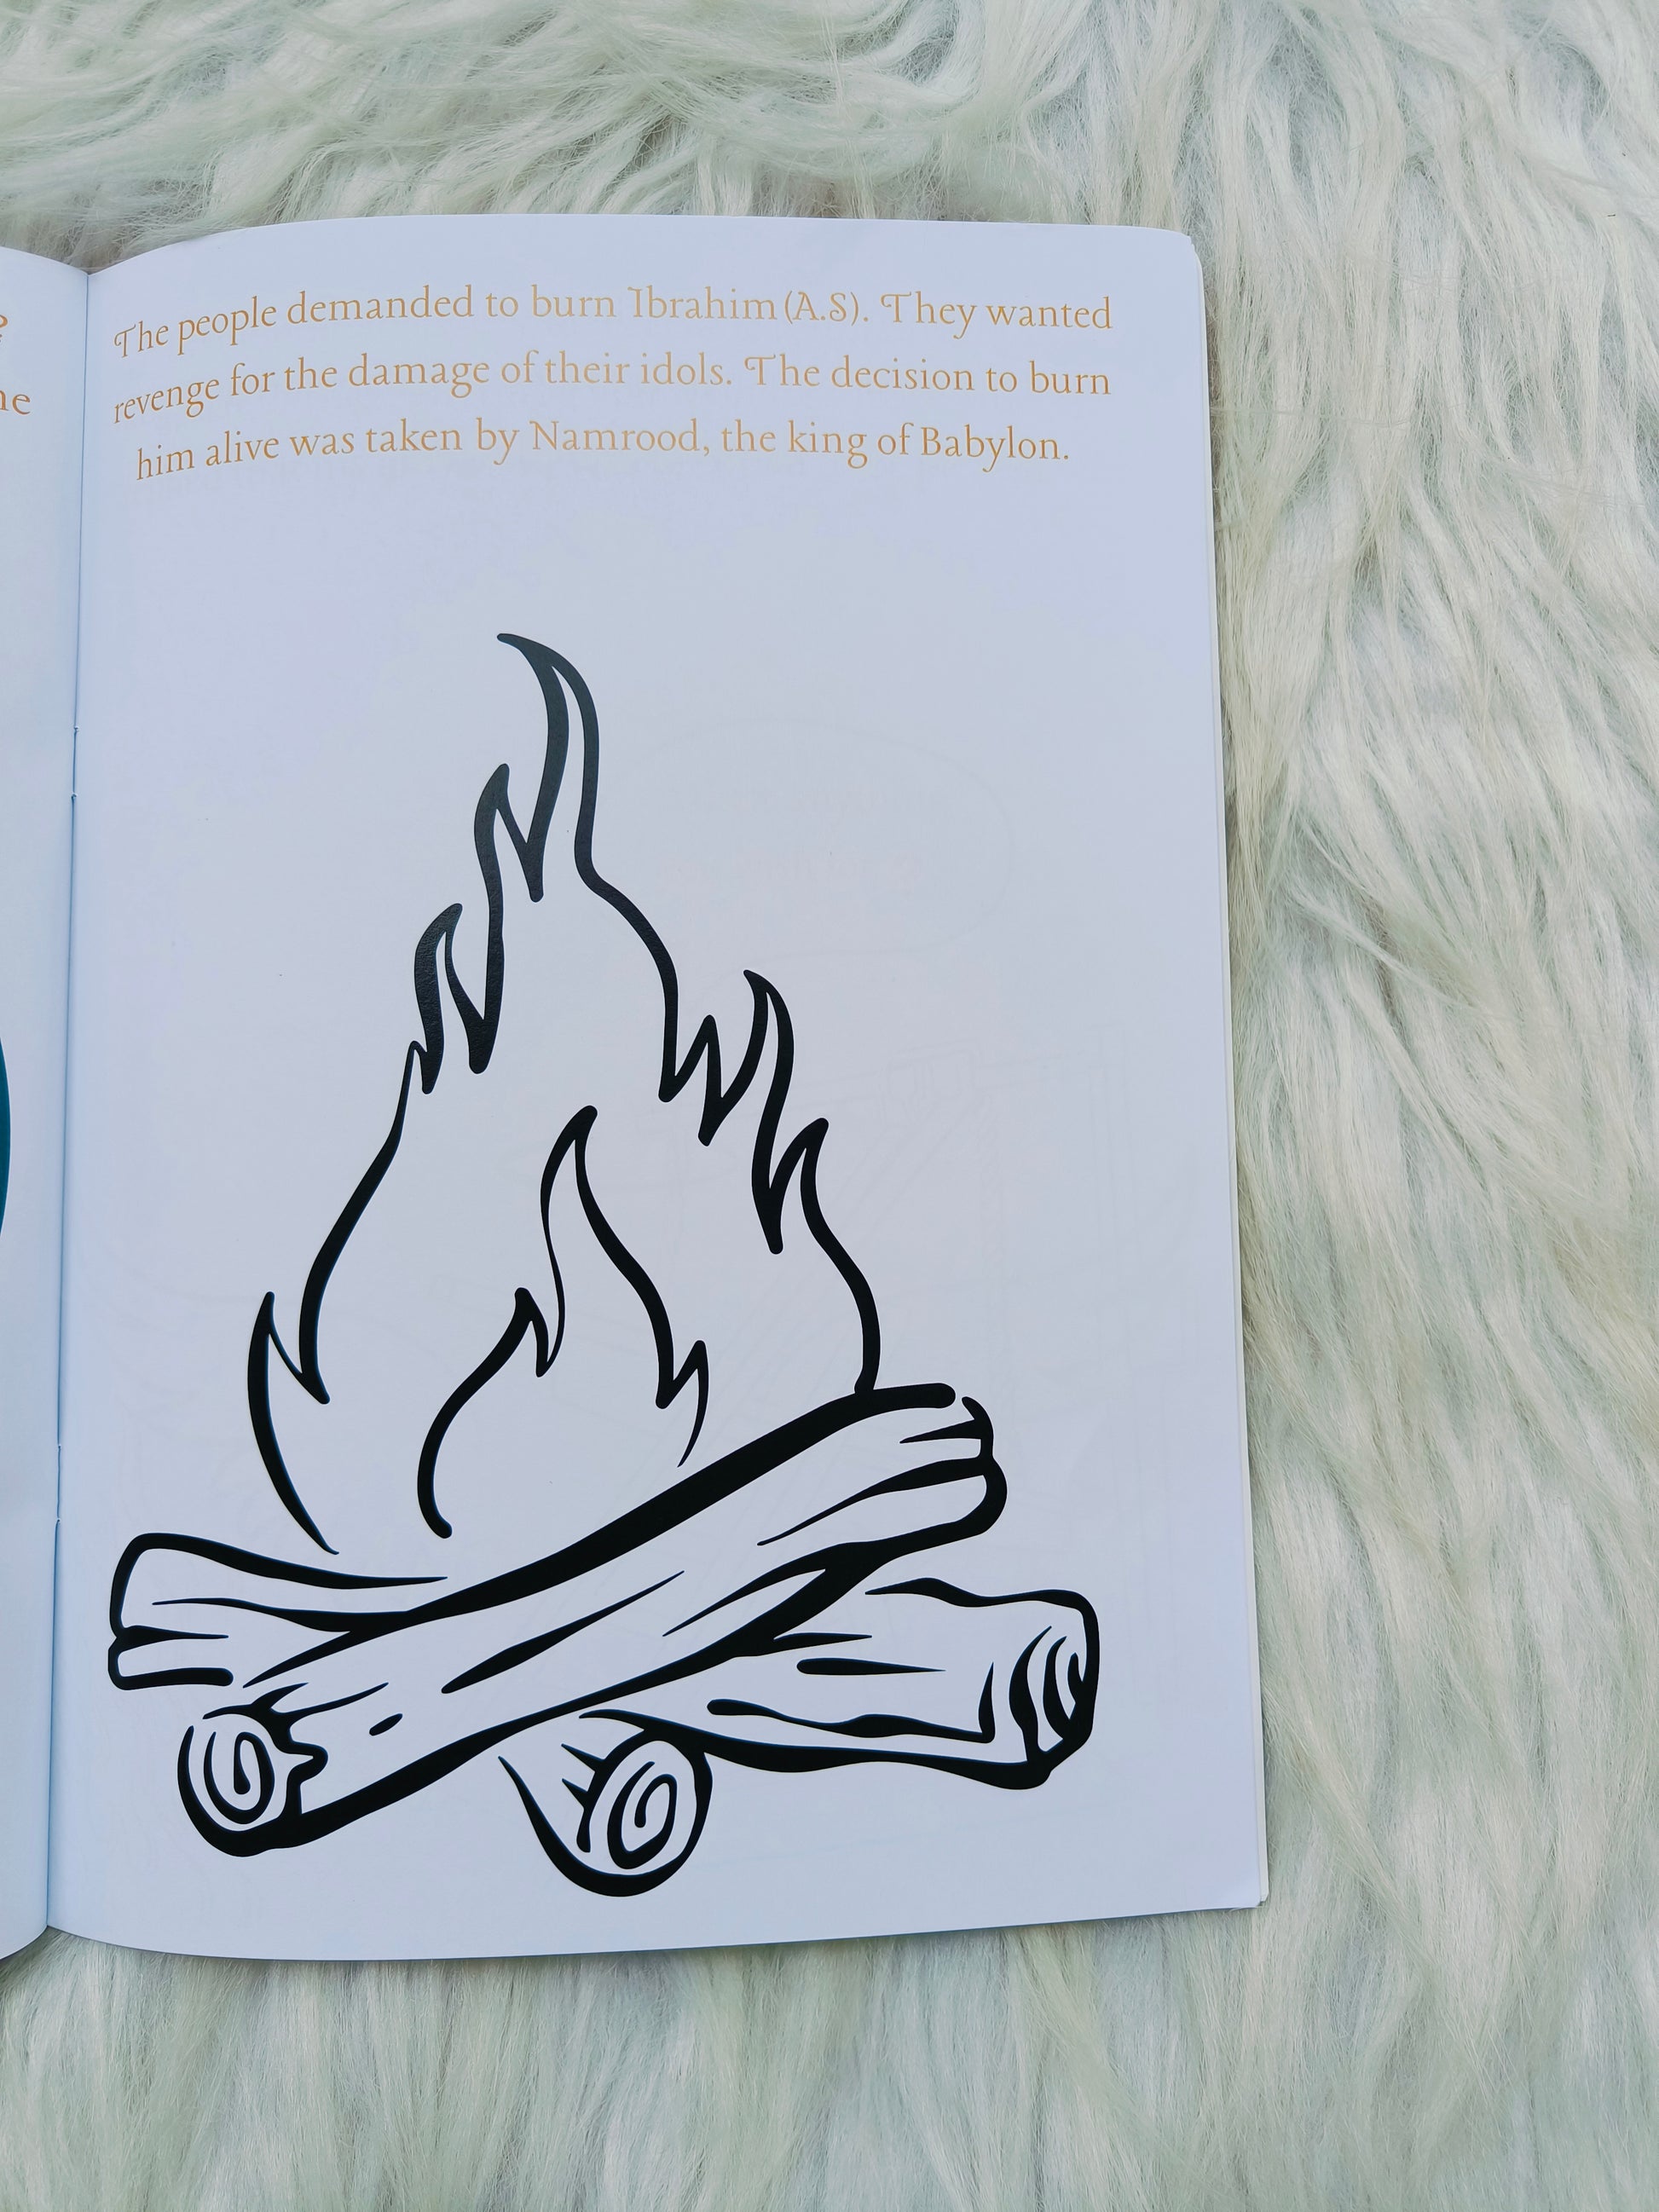 The people demanded to burn Ibrahim (A.S). They wanted
revenge for the damage of their idols. The decision to burn
him alive was taken by Namrood, the king of Babylon.